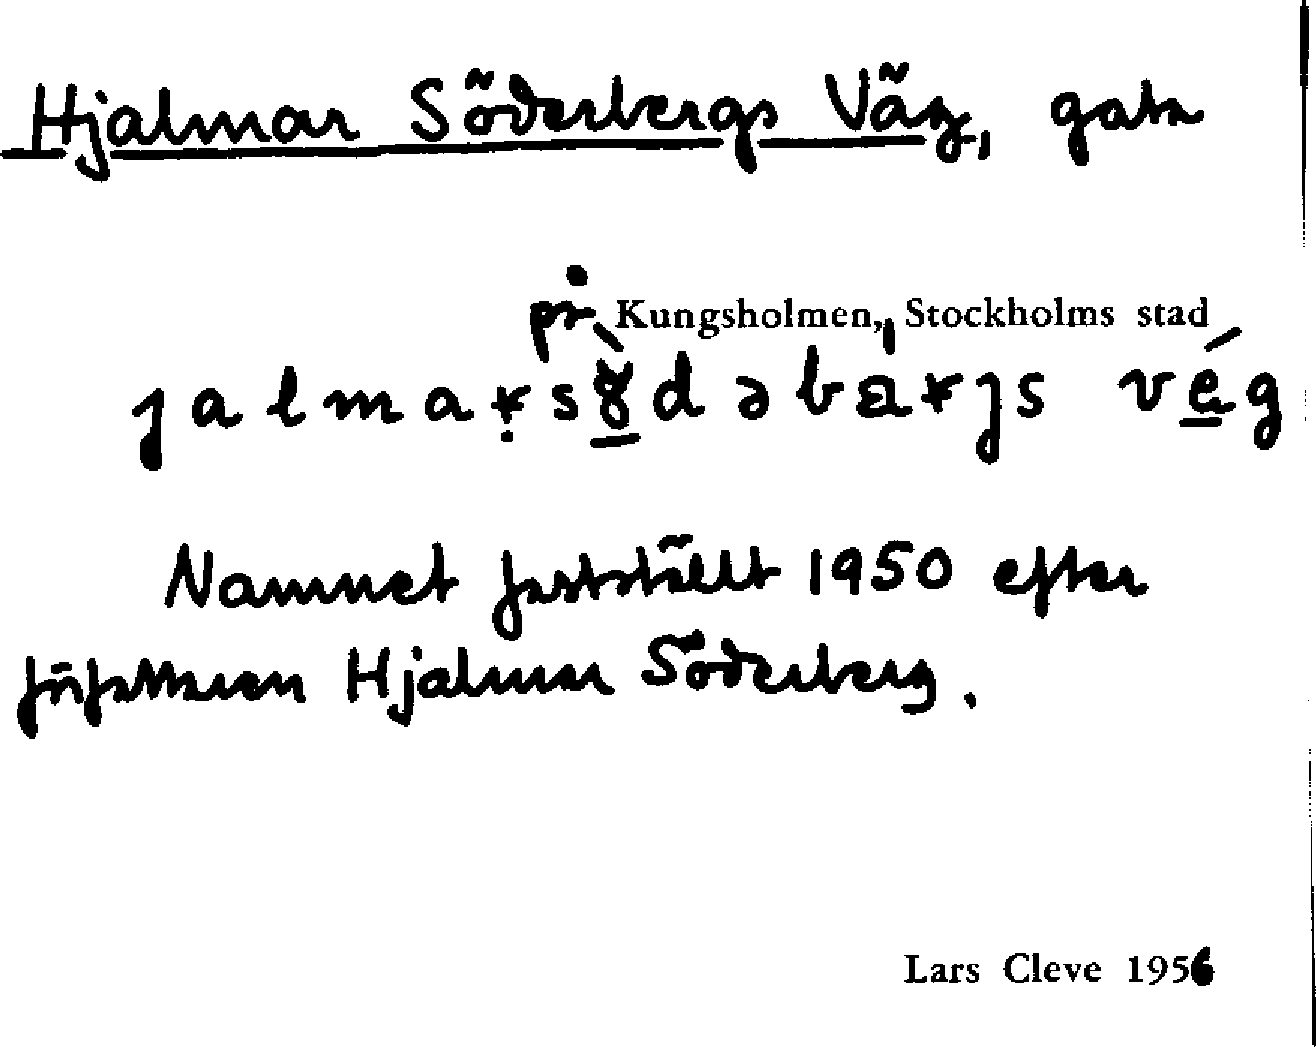 Hjalmar Söderbergs Väg, gata
på Kungsholmen, Stockholms stad
Namnet fastställt 1950 efter
författaren Hjalmar Söderberg.
Lars Cleve 1956